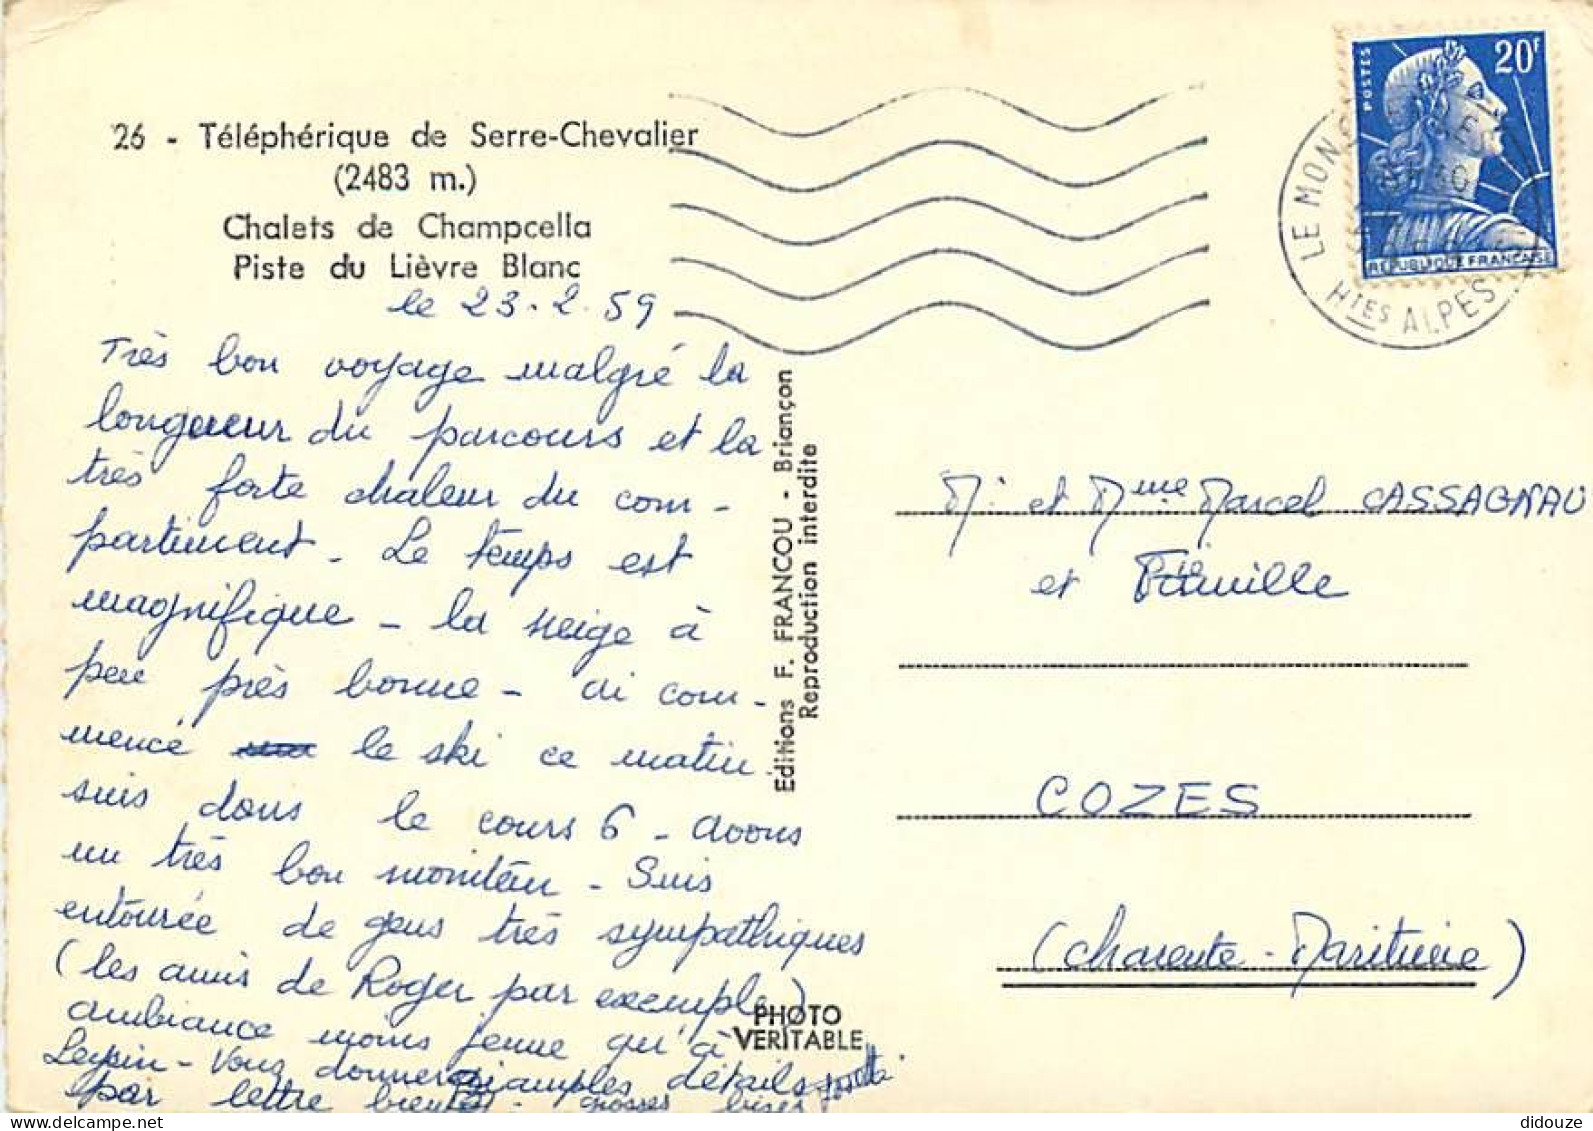 26 - Téléphérique de Serre-Chevalier
(2483 m.)
Chalets de Champcella
Piste du Lièvre Blanc
le 23.2.59
Très bon voyage malgré la
longueur du parcours et la
très forte chaleur du com-
partiment - Le temps est
magnifique - la neige à
peu près bonne - ai com-
mencé le ski ce matin.
suis dans le cours 6 - Avons
un très bon moniteur - Suis
entourée de gens très sympathiques
(les amis de Roger par exemple)
ambiance moins jeune qu'à
Leysin - Vous donnerai amples détails
par lettre bientôt - grosses bises Josette
Editions F. FRANCOU - Briançon
Reproduction interdite
PHOTO
VERITABLE
POSTES
20F
REPUBLIQUE FRANÇAISE
LE MON
HTES ALPES
Mr et Mme Marcel CASSAGNAU
et Famille
COZES
(Charente-Maritime)
didouze